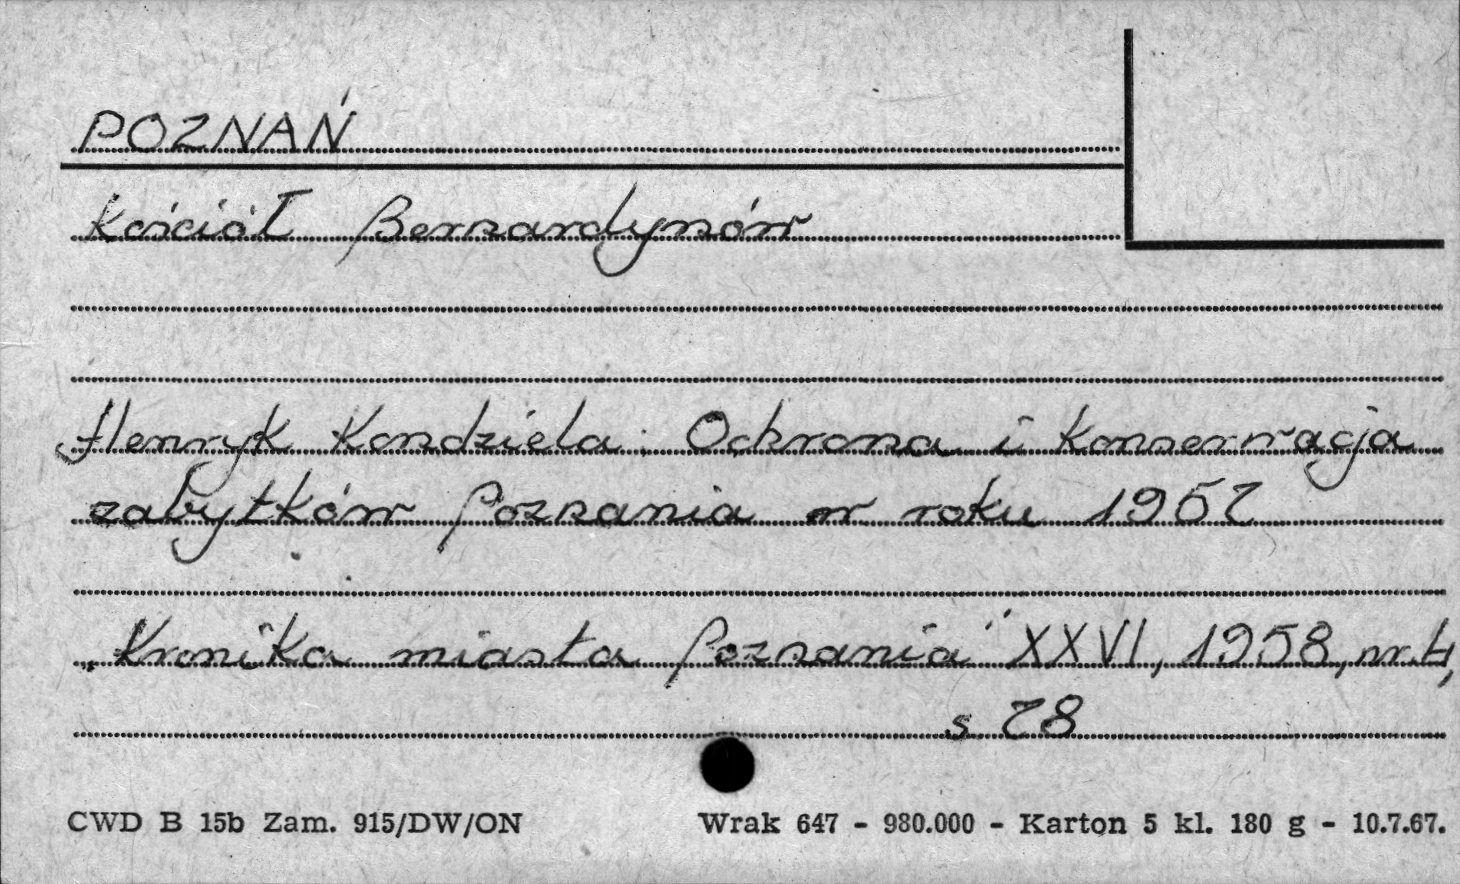 POZNAŃ
Kościół Bernardynów
Henryk Kondziela: Ochrona i konserwacja
zabytków Poznania w roku 1957
„Kronika miasta Poznania" XXVI, 1958, nr. 4,
s 78
CWD B 15b Zam. 915/DW/ON Wrak 647 - 980.000 - Karton 5 kl. 180 g - 10.7.67.